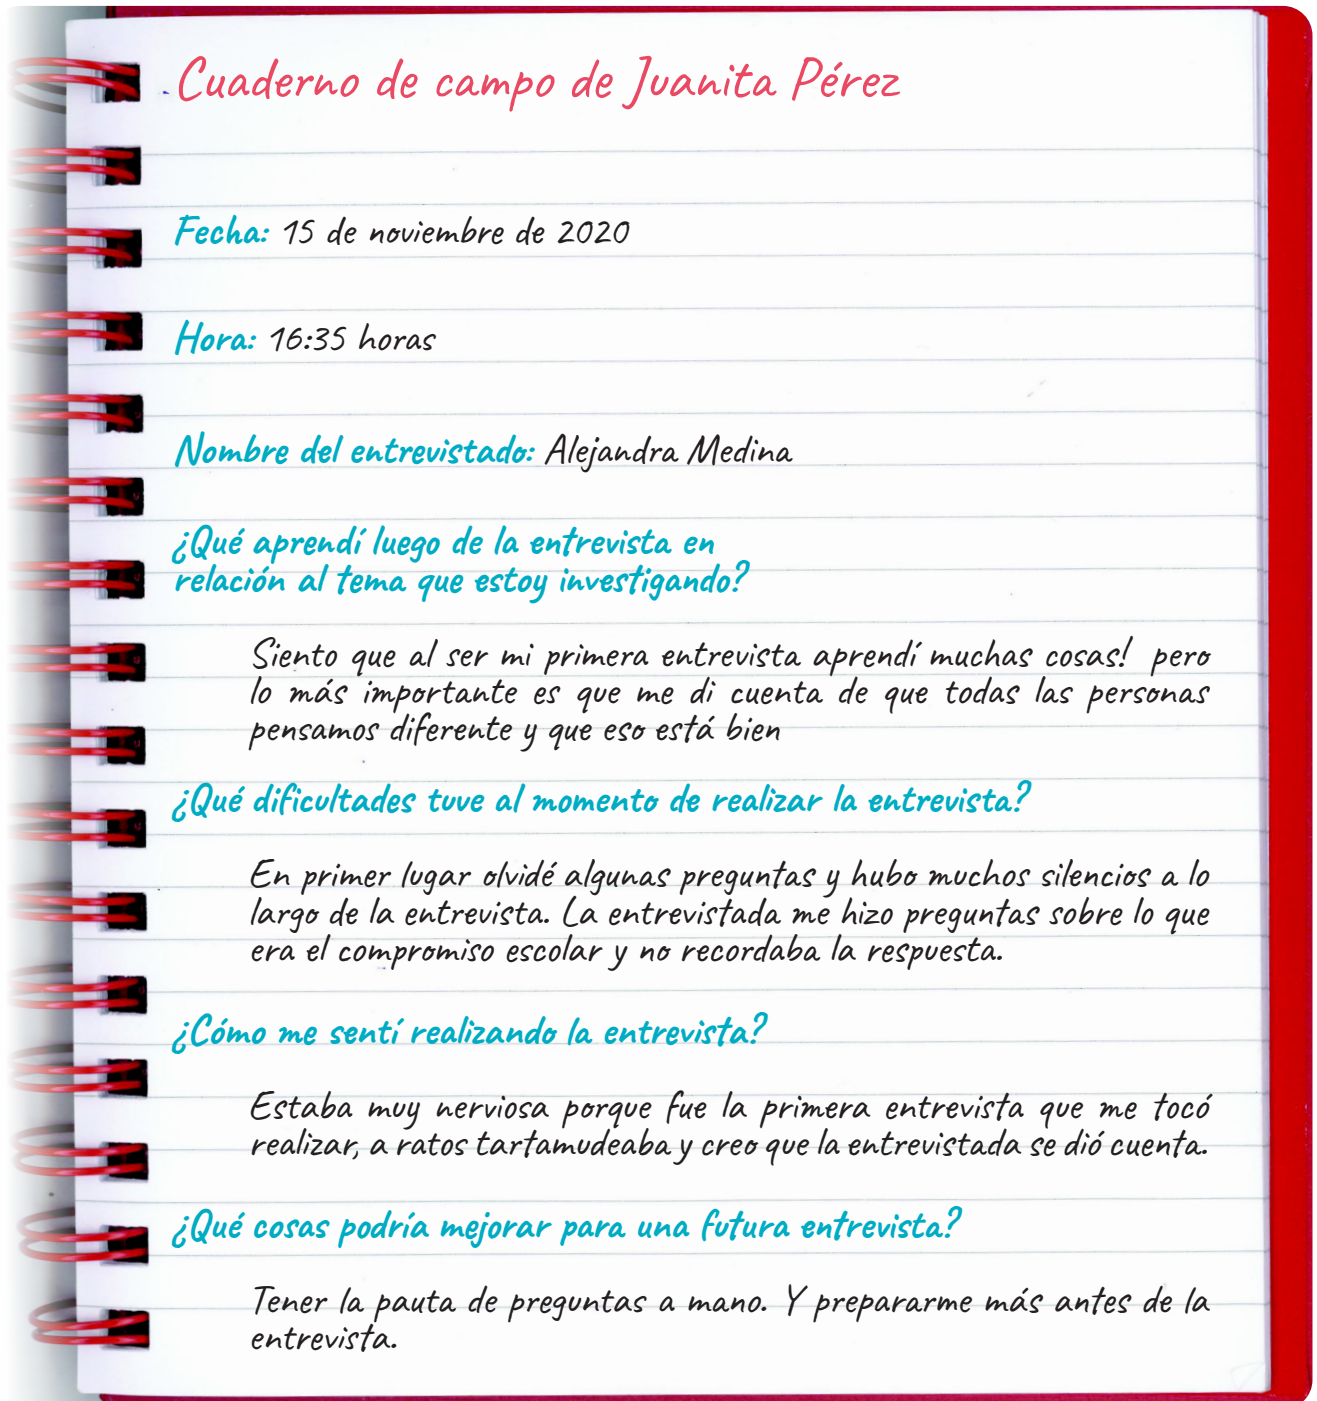 Cuaderno de campo de Juanita Pérez
Fecha: 15 de noviembre de 2020
Hora: 16:35 horas
Nombre del entrevistado: Alejandra Medina
¿Qué aprendí luego de la entrevista en
relación al tema que estoy investigando?
Siento que al ser mi primera entrevista aprendí muchas cosas! pero
lo más importante es que me di cuenta de que todas las personas
pensamos diferente y que eso está bien
¿Qué dificultades tuve al momento de realizar la entrevista?
En primer lugar olvidé algunas preguntas y hubo muchos silencios a lo
largo de la entrevista. La entrevistada me hizo preguntas sobre lo que
era el compromiso escolar y no recordaba la respuesta.
¿Cómo me sentí realizando la entrevista?
Estaba muy nerviosa porque fue la primera entrevista que me tocó
realizar, a ratos tartamudeaba y creo que la entrevistada se dió cuenta.
¿Qué cosas podría mejorar para una futura entrevista?
Tener la pauta de preguntas a mano. Y prepararme más antes de la
entrevista.